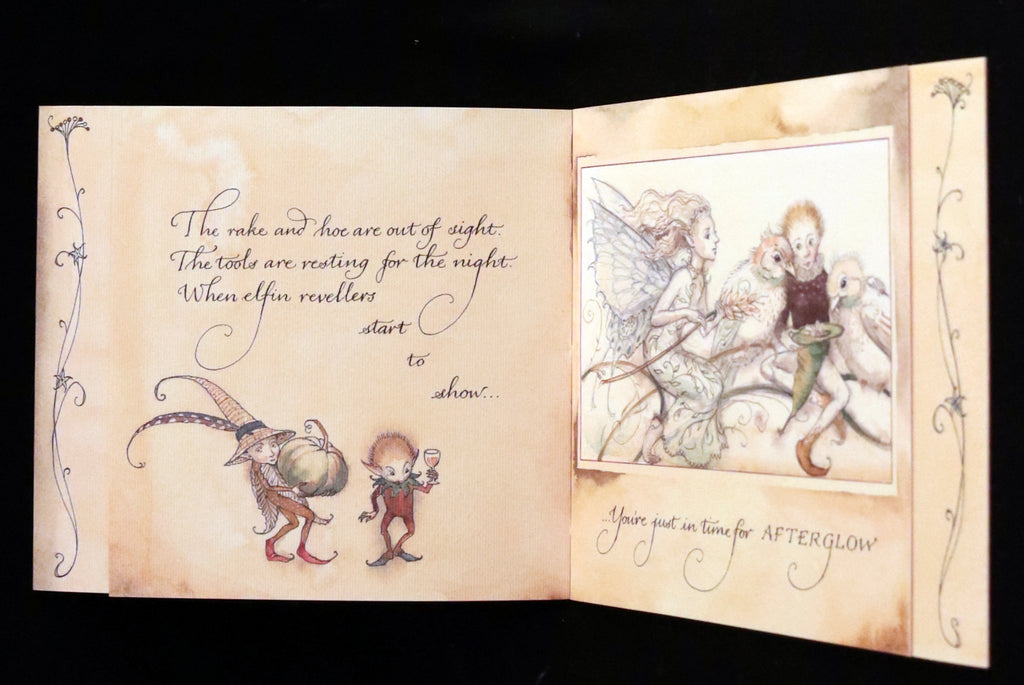 The rake and hoe are out of sight.
The tools are resting for the night.
When elfin revellers
start
to
show...
...You're just in time for AFTERGLOW